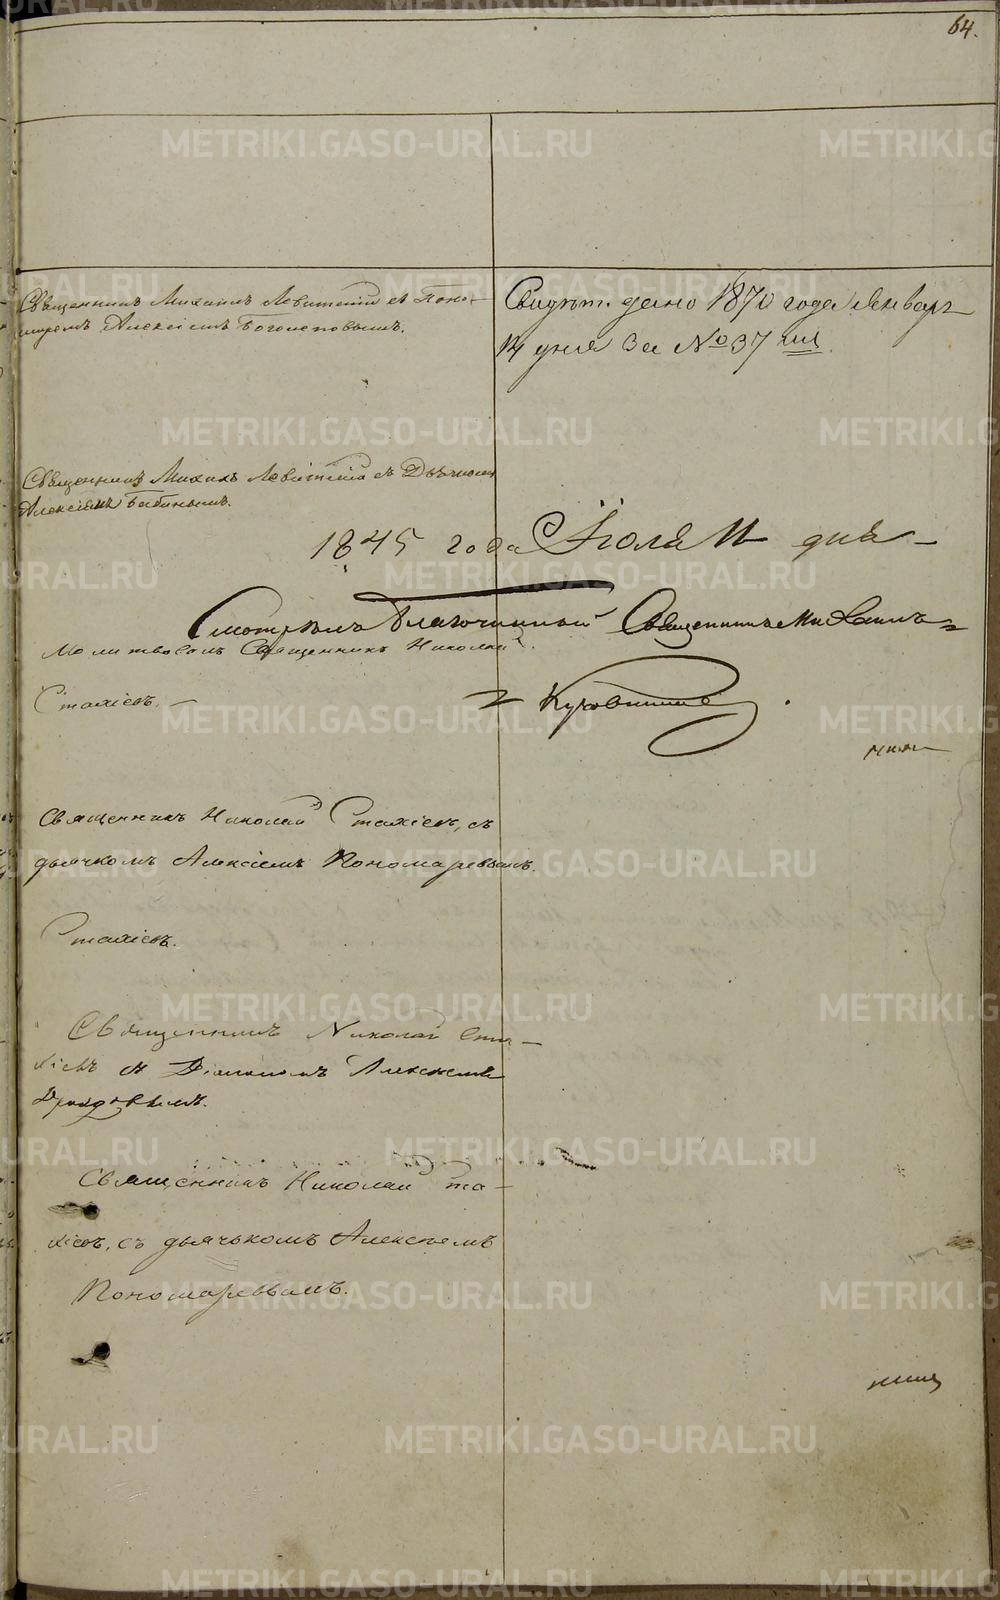 64.
Священникъ Михаилъ Левитскій съ Поно-
маремъ Алексіемъ Боголеповымъ.
Свидѣт. дано 1870 года Январ
14 дня За № 37 мъ.
Священникъ Михаилъ Левитскій съ Дьячкомъ
Алексіемъ Бабинымъ.
1845 года Іюля 11 дня
Смотрѣлъ Благочинный Священникъ Михаилъ
Молитвовалъ Священникъ Николай
Стахіевъ.
Священникъ Николай Стахіевъ, съ
дьячкомъ Алексіемъ Пономаревымъ.
Стахіевъ.
Священникъ Николай Ста-
хіевъ съ Діакономъ Алексіемъ
Дроздовымъ.
Священникъ Николай Ста-
хіевъ, съ дьячькомъ Алексѣемъ
Пономаревымъ.
METRIKI.GASO-URAL.RU